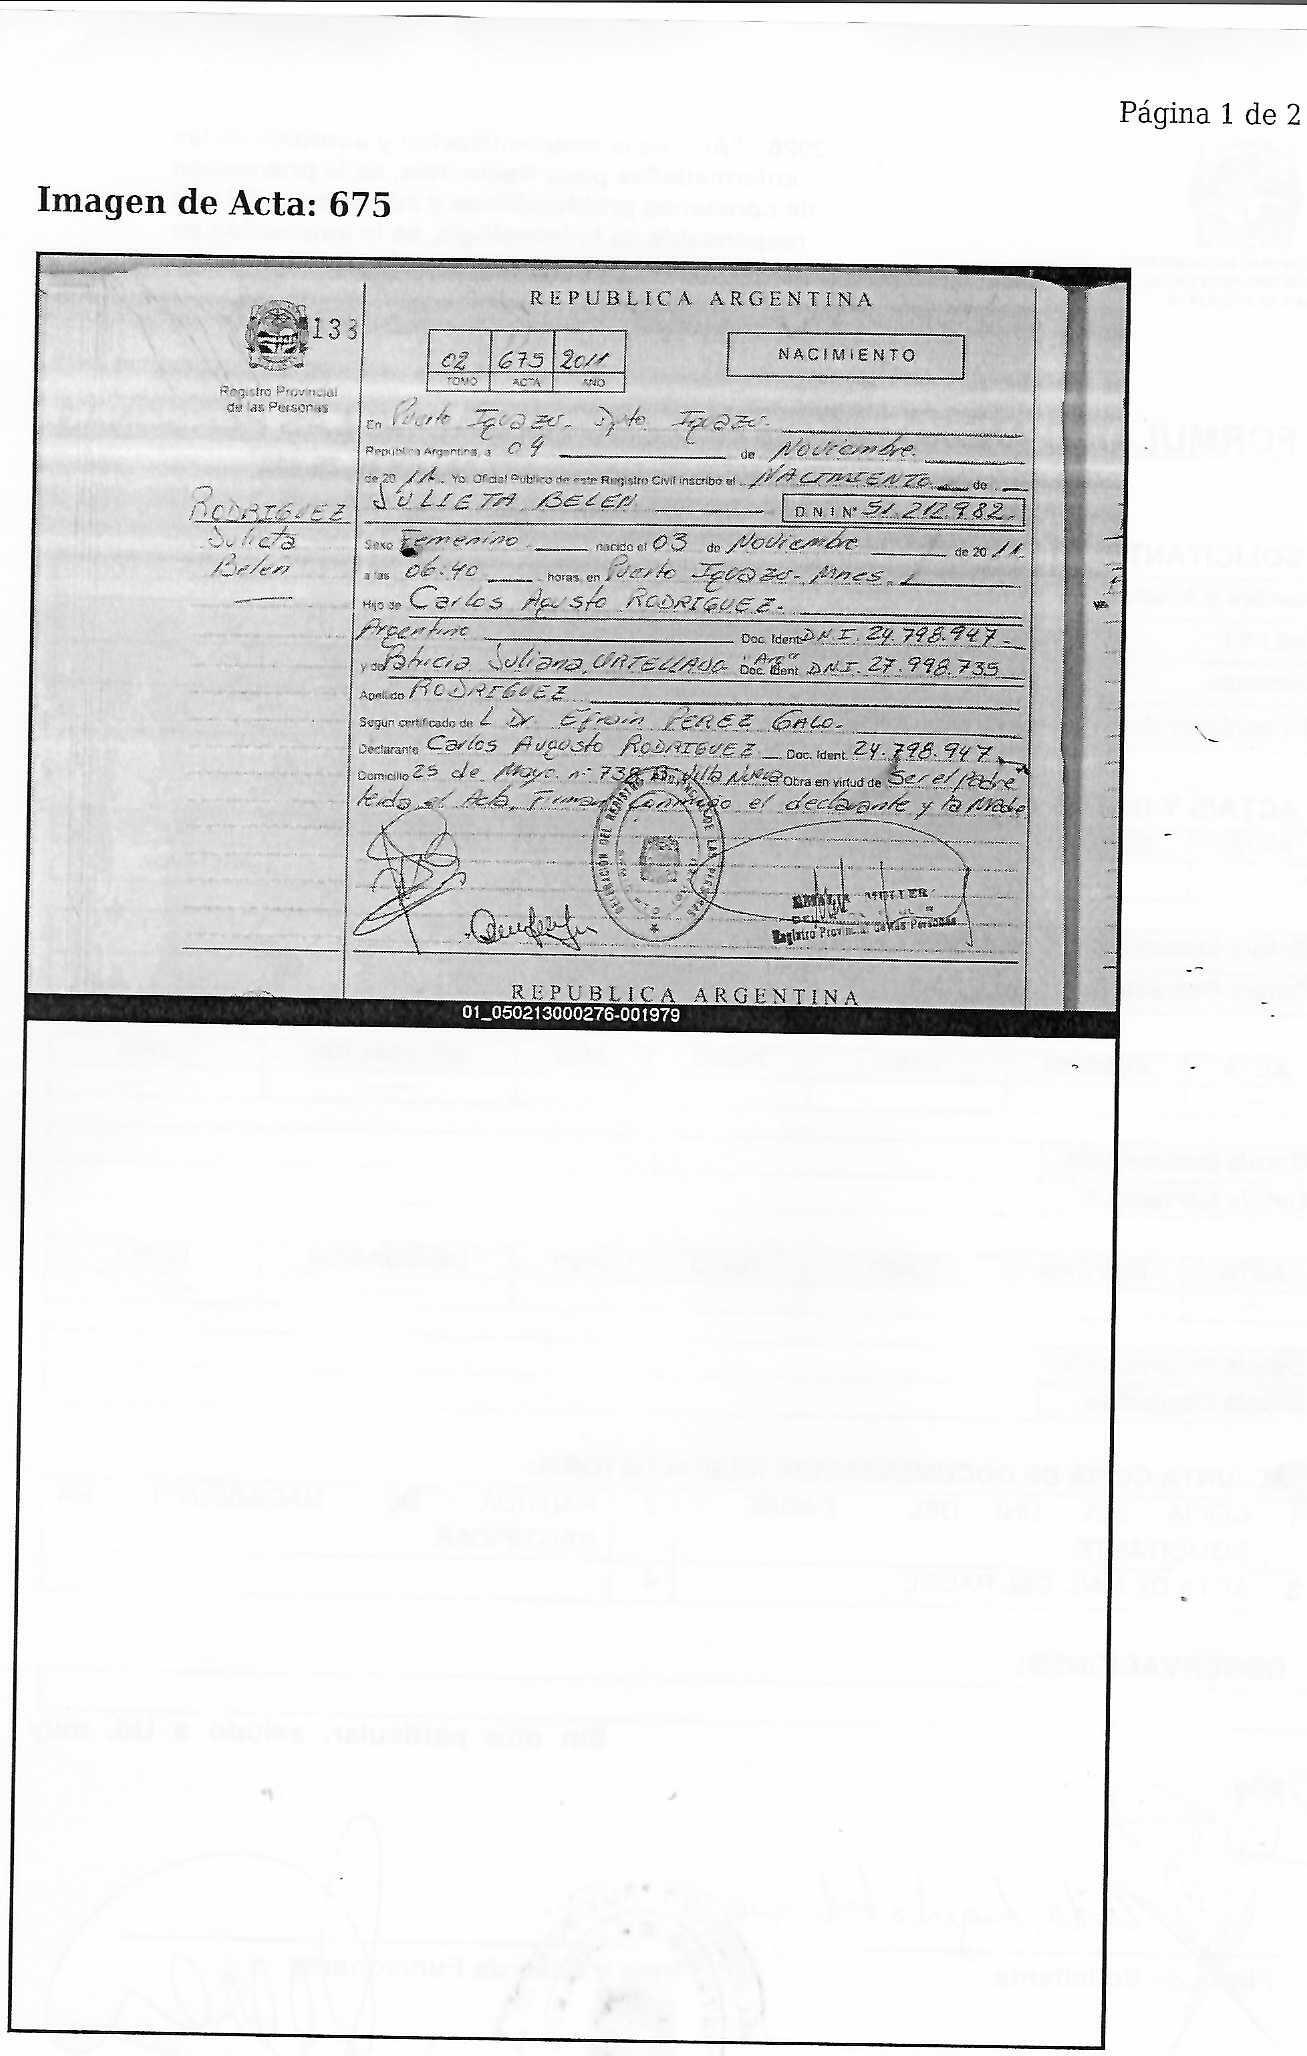 Página 1 de 2
Imagen de Acta: 675
REPUBLICA ARGENTINA
133
02 675 2011
TOMO ACTA AÑO
NACIMIENTO
Registro Provincial
de las Personas
En Puerto Iguazú. Dpto. Iguazú.
Republica Argentina, a 04 de Noviembre.
de 20 11. Yo, Oficial Publico de este Registro Civil inscribo el NACIMIENTO de
JULIETA BELEN D N I Nº 51.212.982.
RODRIGUEZ
Julieta
Belen
Sexo Femenino nacido el 03 de Noviembre de 20 11.
a las 06:40 horas, en Puerto Iguazú - Mnes.
Hijo de Carlos Agusto RODRIGUEZ.
Argentino Doc. Ident D.N.I. 24.798.947
y de Patricia Juliana URTELLADO "Arg" Doc. Ident D.N.I. 27.998.735
Apellido RODRIGUEZ
Segun certificado de L Dr. Efrain PEREZ GALO.
Declarante Carlos Augusto RODRIGUEZ Doc. Ident 24.798.947
Domicilio 25 de Mayo nº 738 Villa Nueva Obra en virtud de Ser el Padre
leida el Acta, Firman conmigo el declarante y la Madre
MULLER
Registro Provincial de las Personas
REPUBLICA ARGENTINA
01_050213000276-001979